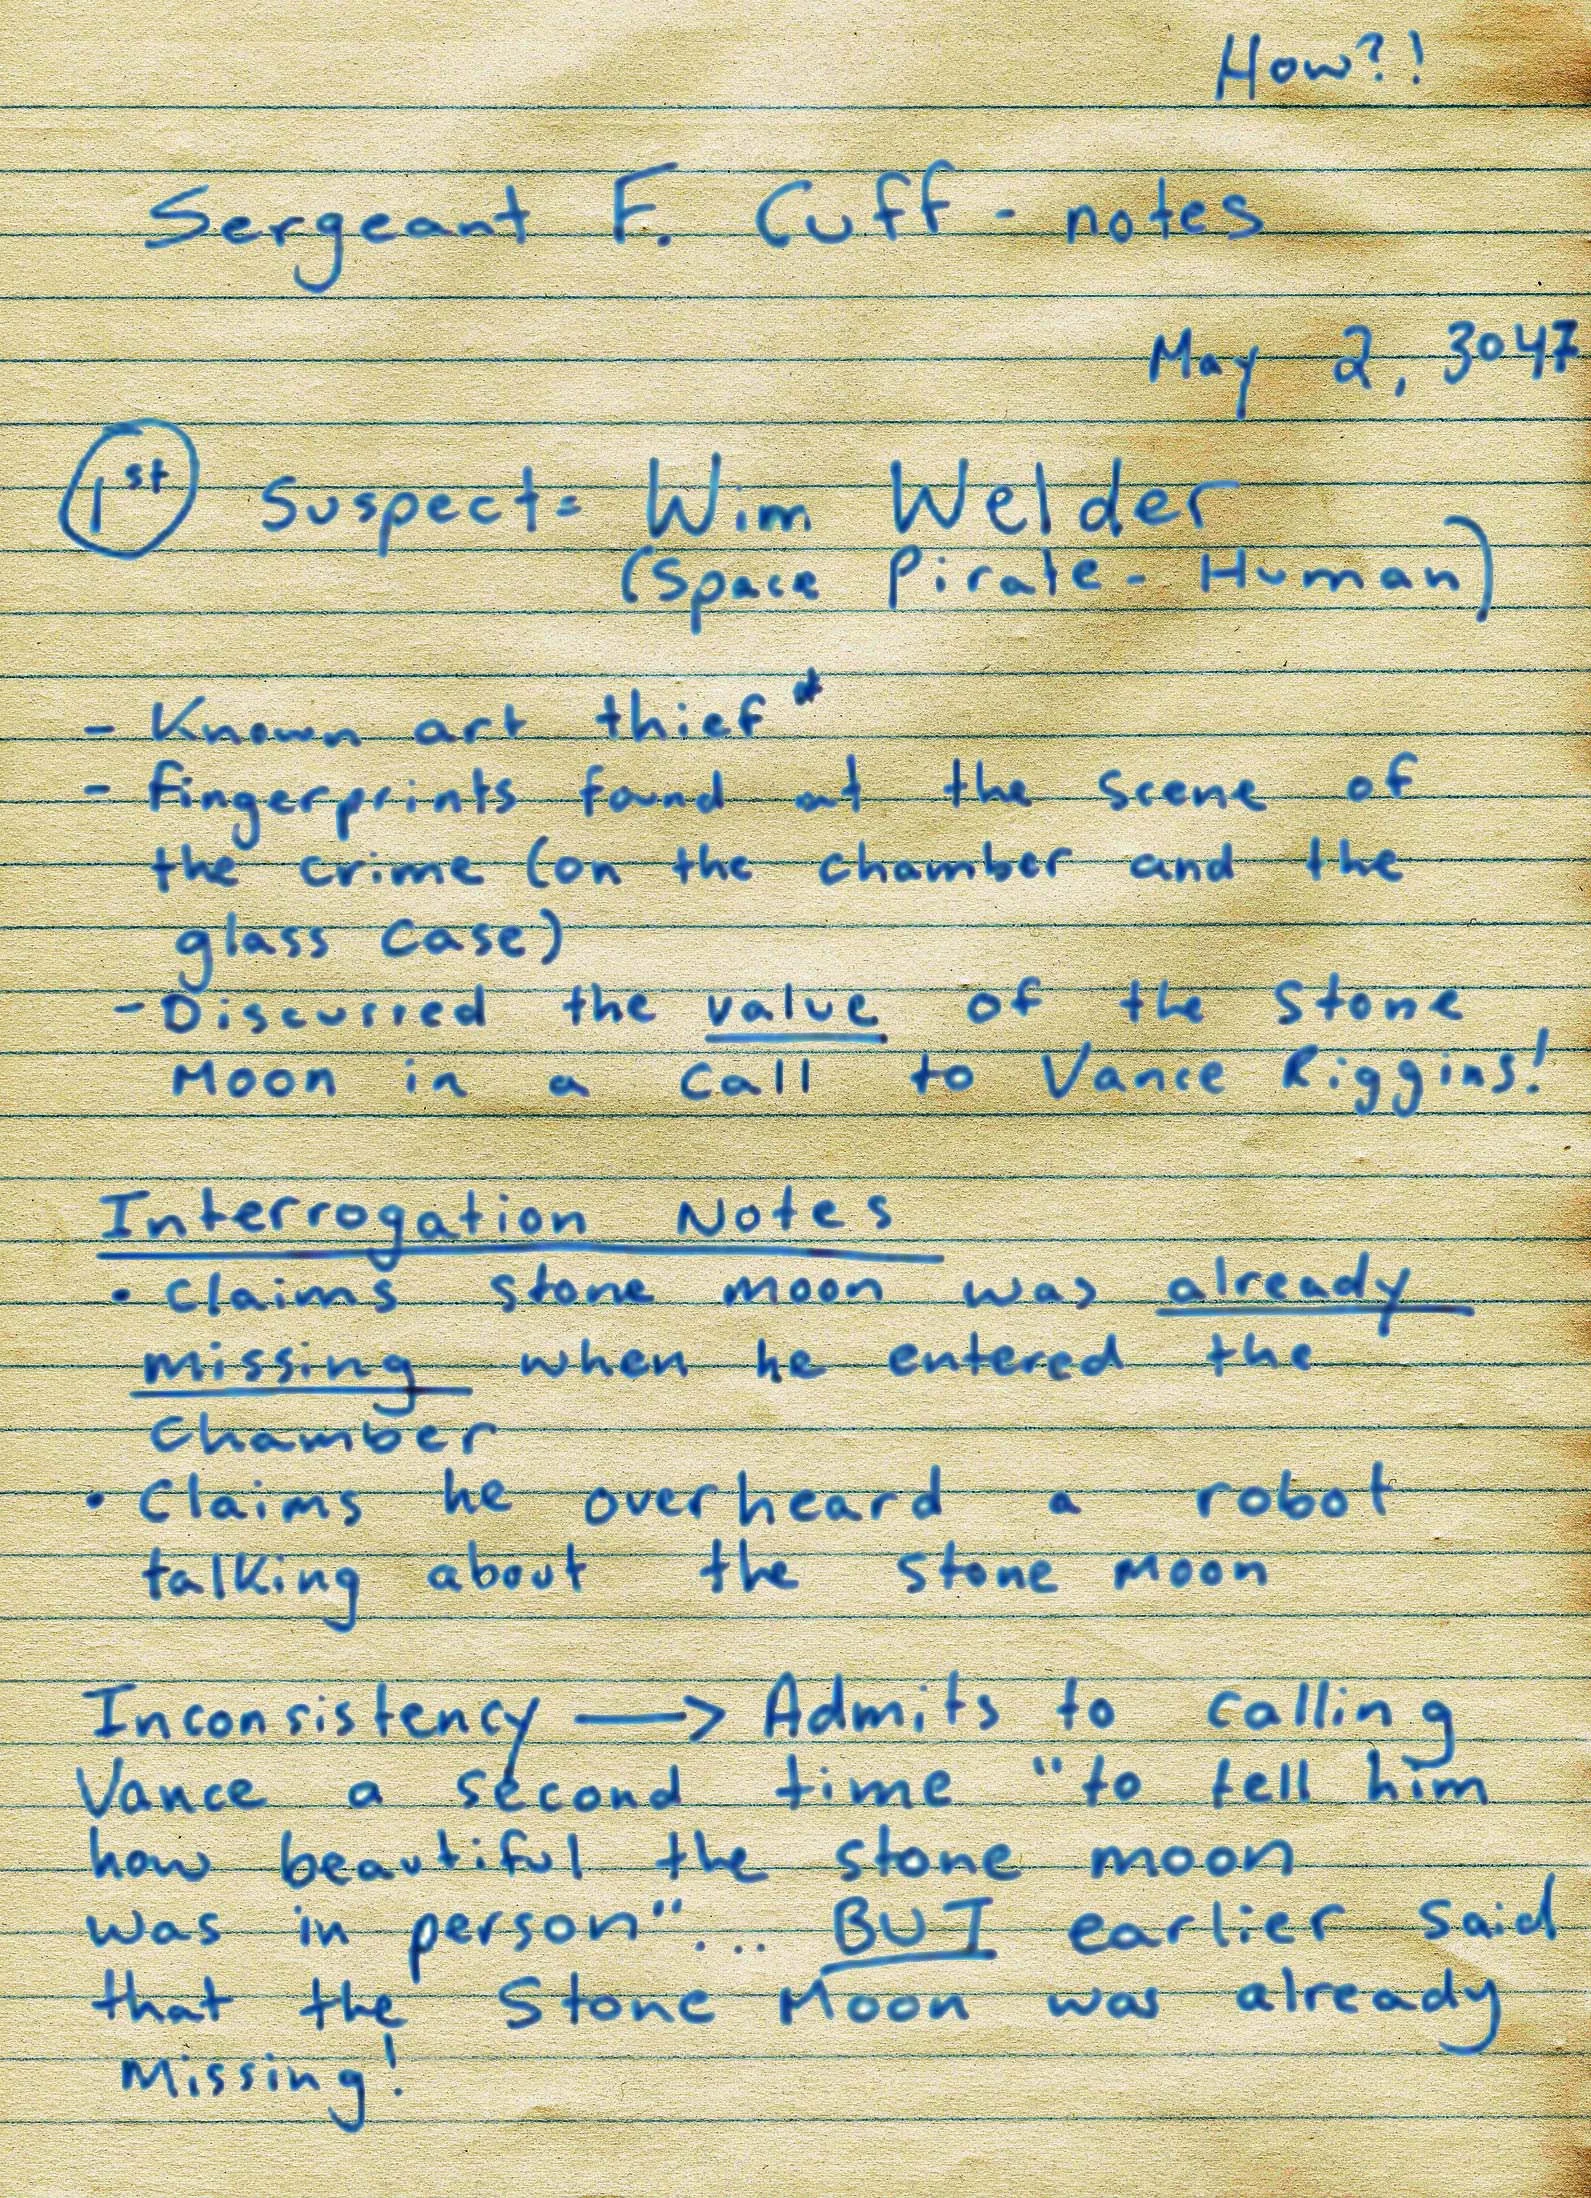 How?!
Sergeant F. Cuff - notes
May 2, 3047
1st Suspect= Wim Welder
(Space Pirate - Human)
- Known art thief*
- fingerprints found at the scene of
the crime (on the chamber and the
glass case)
- Discussed the value of the Stone
Moon in a call to Vance Riggins!
Interrogation Notes
• Claims stone moon was already
missing when he entered the
chamber
• Claims he overheard a robot
talking about the Stone Moon
Inconsistency → Admits to calling
Vance a second time "to tell him
how beautiful the stone moon
was in person"... BUT earlier said
that the Stone Moon was already
Missing!